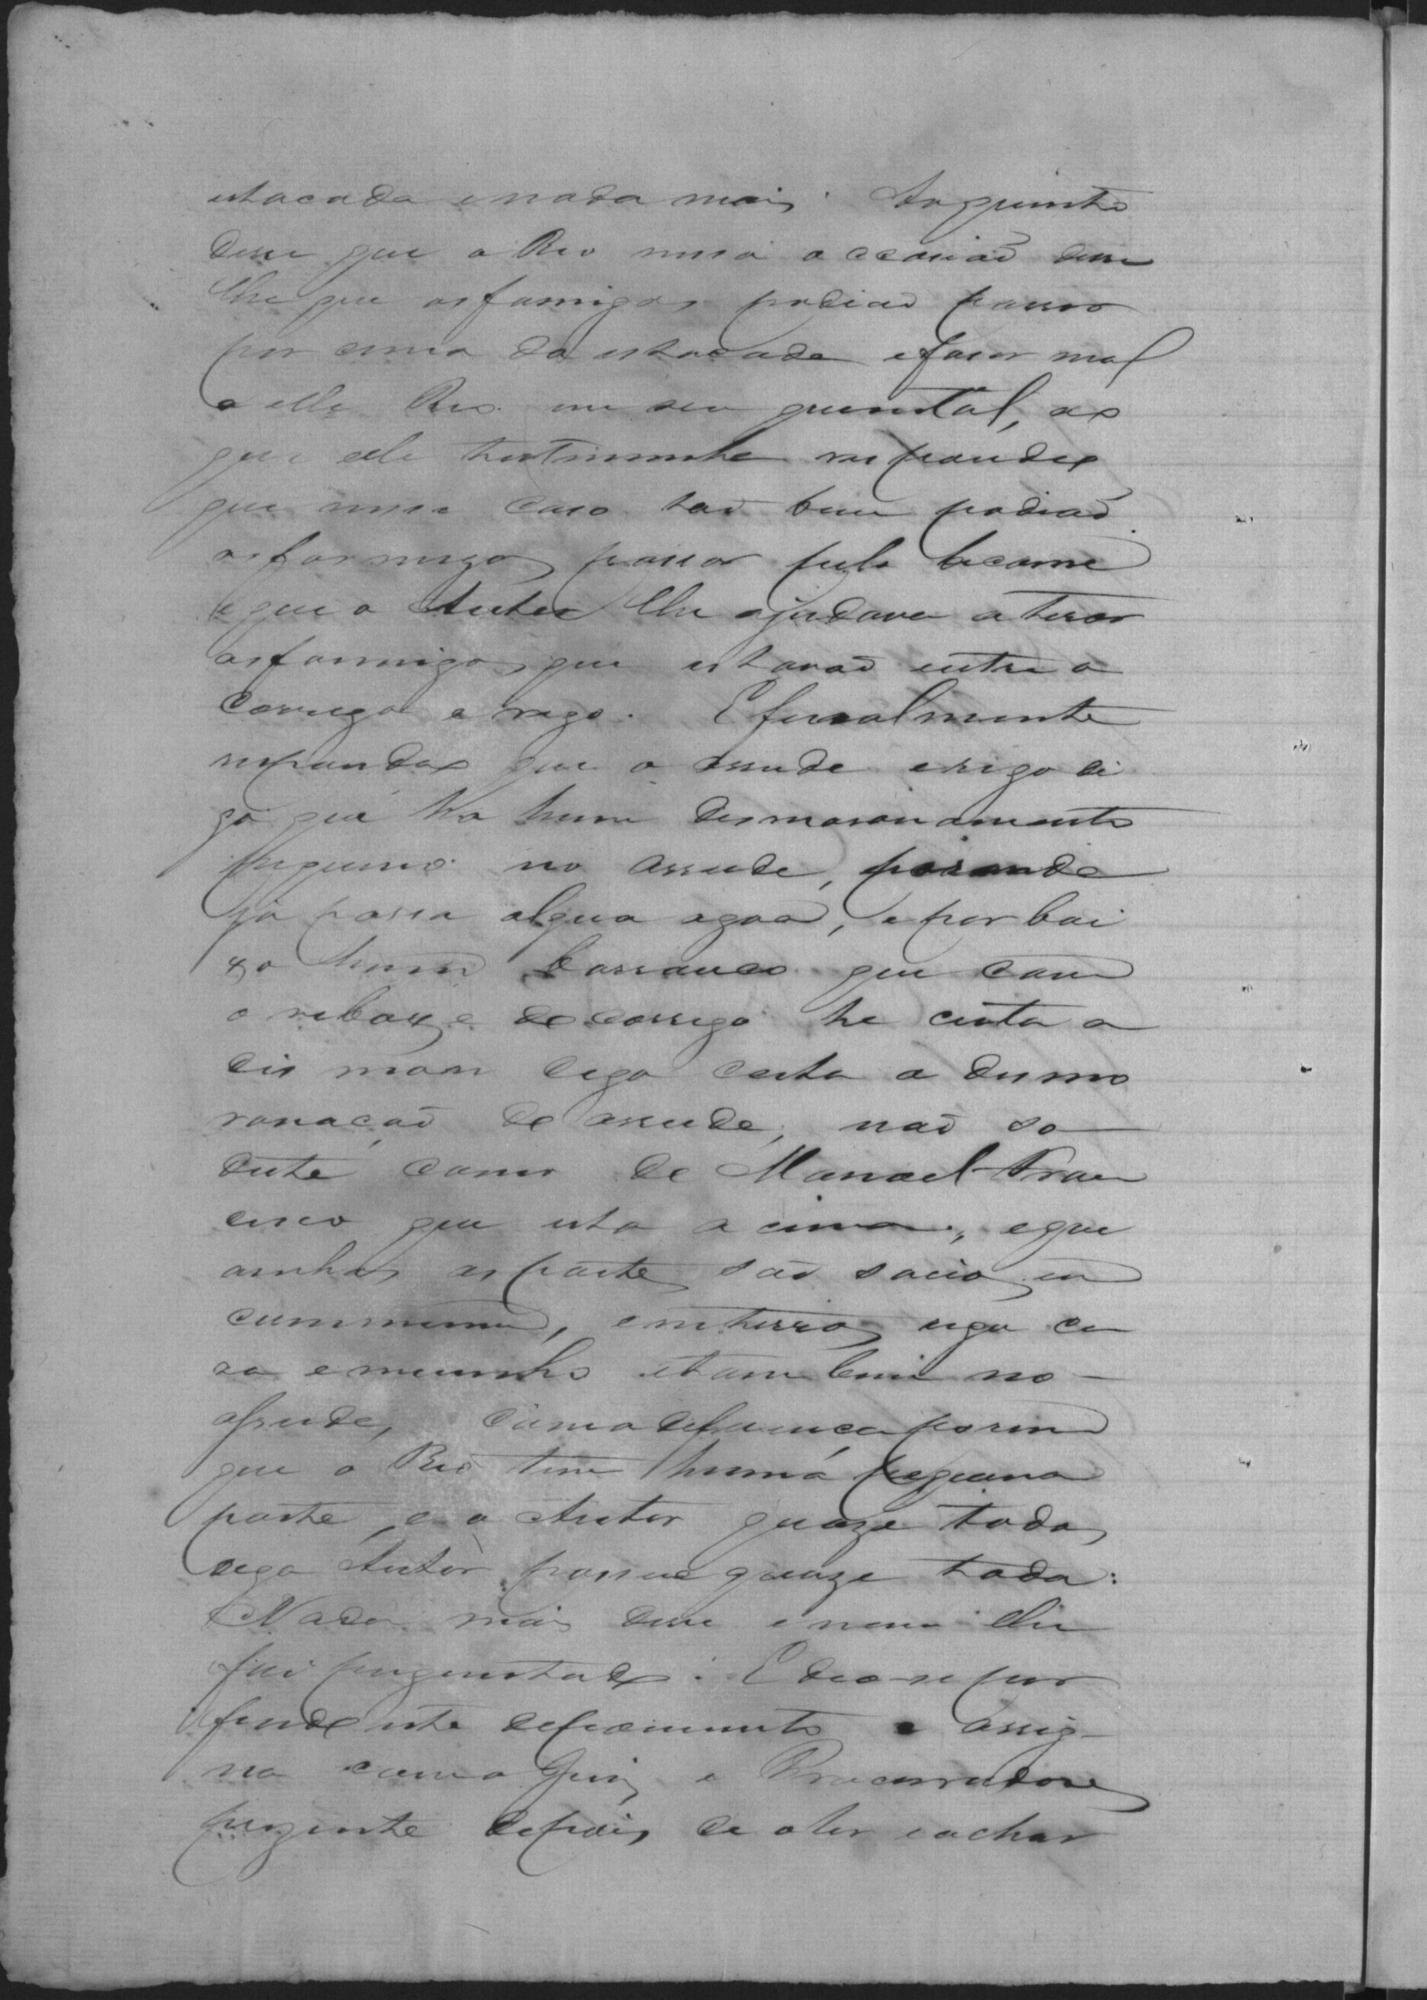 estacada e nada mais. Ao quinto
disse que o Reo nessa occasião disse
lhe que as formigas podião passar
por cima da estacada e faser mal
a elle Reo em seu quintal, ao
que elle testimunha respondeo
que nesse caso tão bem podião
as formigas passar pelo
e que o Autor lhe ajudava a tirar
as formigas que estavão entre o
corrego e rego. E finalmente
respondeo que o assude e rigo di
go que ha hum desmoronamento
piqueno no assude, por onde
já passa algua agoa, e por bai
xo hum barranco que com
o rebaixe do corrego he certa a
des mor digo certa a desmo
ronação do assude, não só
deste como de Manoel Fran
cisco que esta acima, e que
ambas as partes são socios em
commum, em terras digo ca
sa e moinho e tam bem no
assude, com a defrença porem
que o Reo tem huma piquena
parte, e o Autor quaze toda,
digo Autor possue quaze toda:
Nada mais disse e nem lhe
foi preguntado. E deo-se por
findo este depoimento e assig-
na com o Juiz e Procuradores
prezente depois de o ler e achar